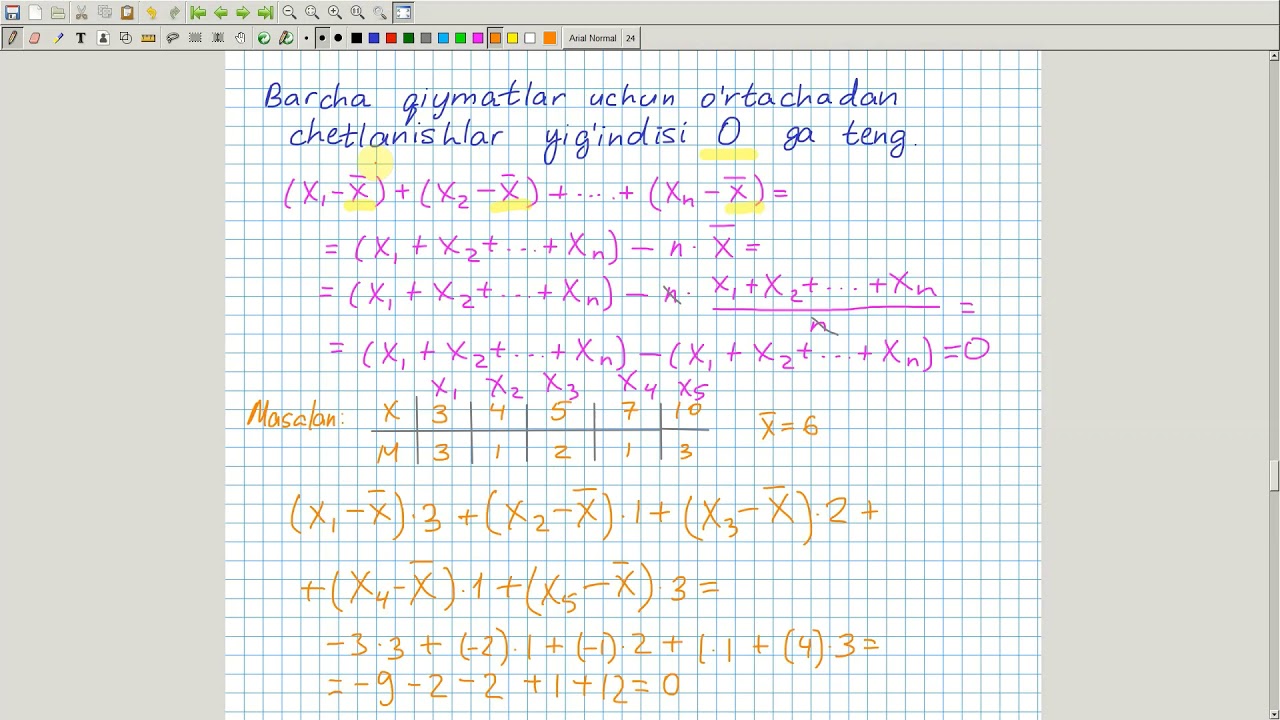 Arial Normal 24
Barcha qiymatlar uchun o'rtachadan
chetlanishlar yig'indisi 0 ga teng.
(x₁-x̄)+(x₂-x̄)+...+(xₙ-x̄)=
=(x₁+x₂+...+xₙ)-n·x̄=
=(x₁+x₂+...+xₙ)-n·(x₁+x₂+...+xₙ)/n=
=(x₁+x₂+...+xₙ)-(x₁+x₂+...+xₙ)=0
x₁ x₂ x₃ x₄ x₅
Masalan: X 3 4 5 7 10 x̄=6
M 3 1 2 1 3
(x₁-x̄)·3+(x₂-x̄)·1+(x₃-x̄)·2+
+(x₄-x̄)·1+(x₅-x̄)·3=
-3·3+(-2)·1+(-1)·2+1·1+(4)·3=
=-9-2-2+1+12=0